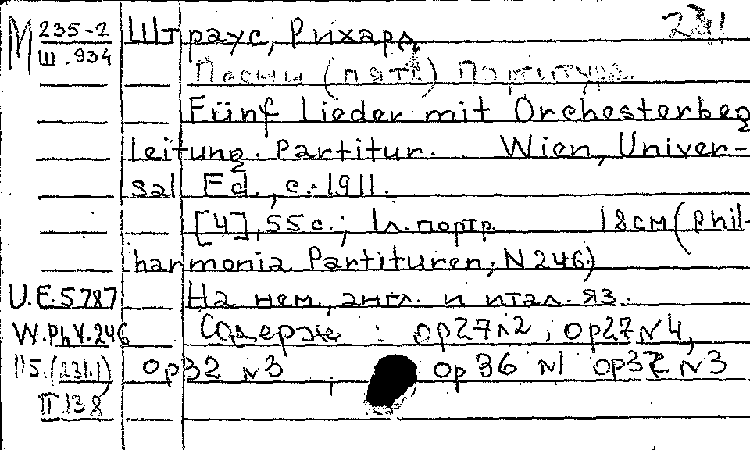 М 235-2 Штраус, Рихард 231
Ш.934
Песни (пять) Партитура.
Fünf Lieder mit Orchesterbeg
leitung. Partitur. Wien, Univer-
sal Ed., c. 1911.
[4], 55 с.; 1 л. портр. 18 см (Phil-
harmonia Partituren; N 246)
U.E.5787 На нем., англ. и итал. яз.
W.Ph.V.246 Содерж : op27 N2, op27 N4,
op32 N3, op 36 N1 op37 N3
II 138